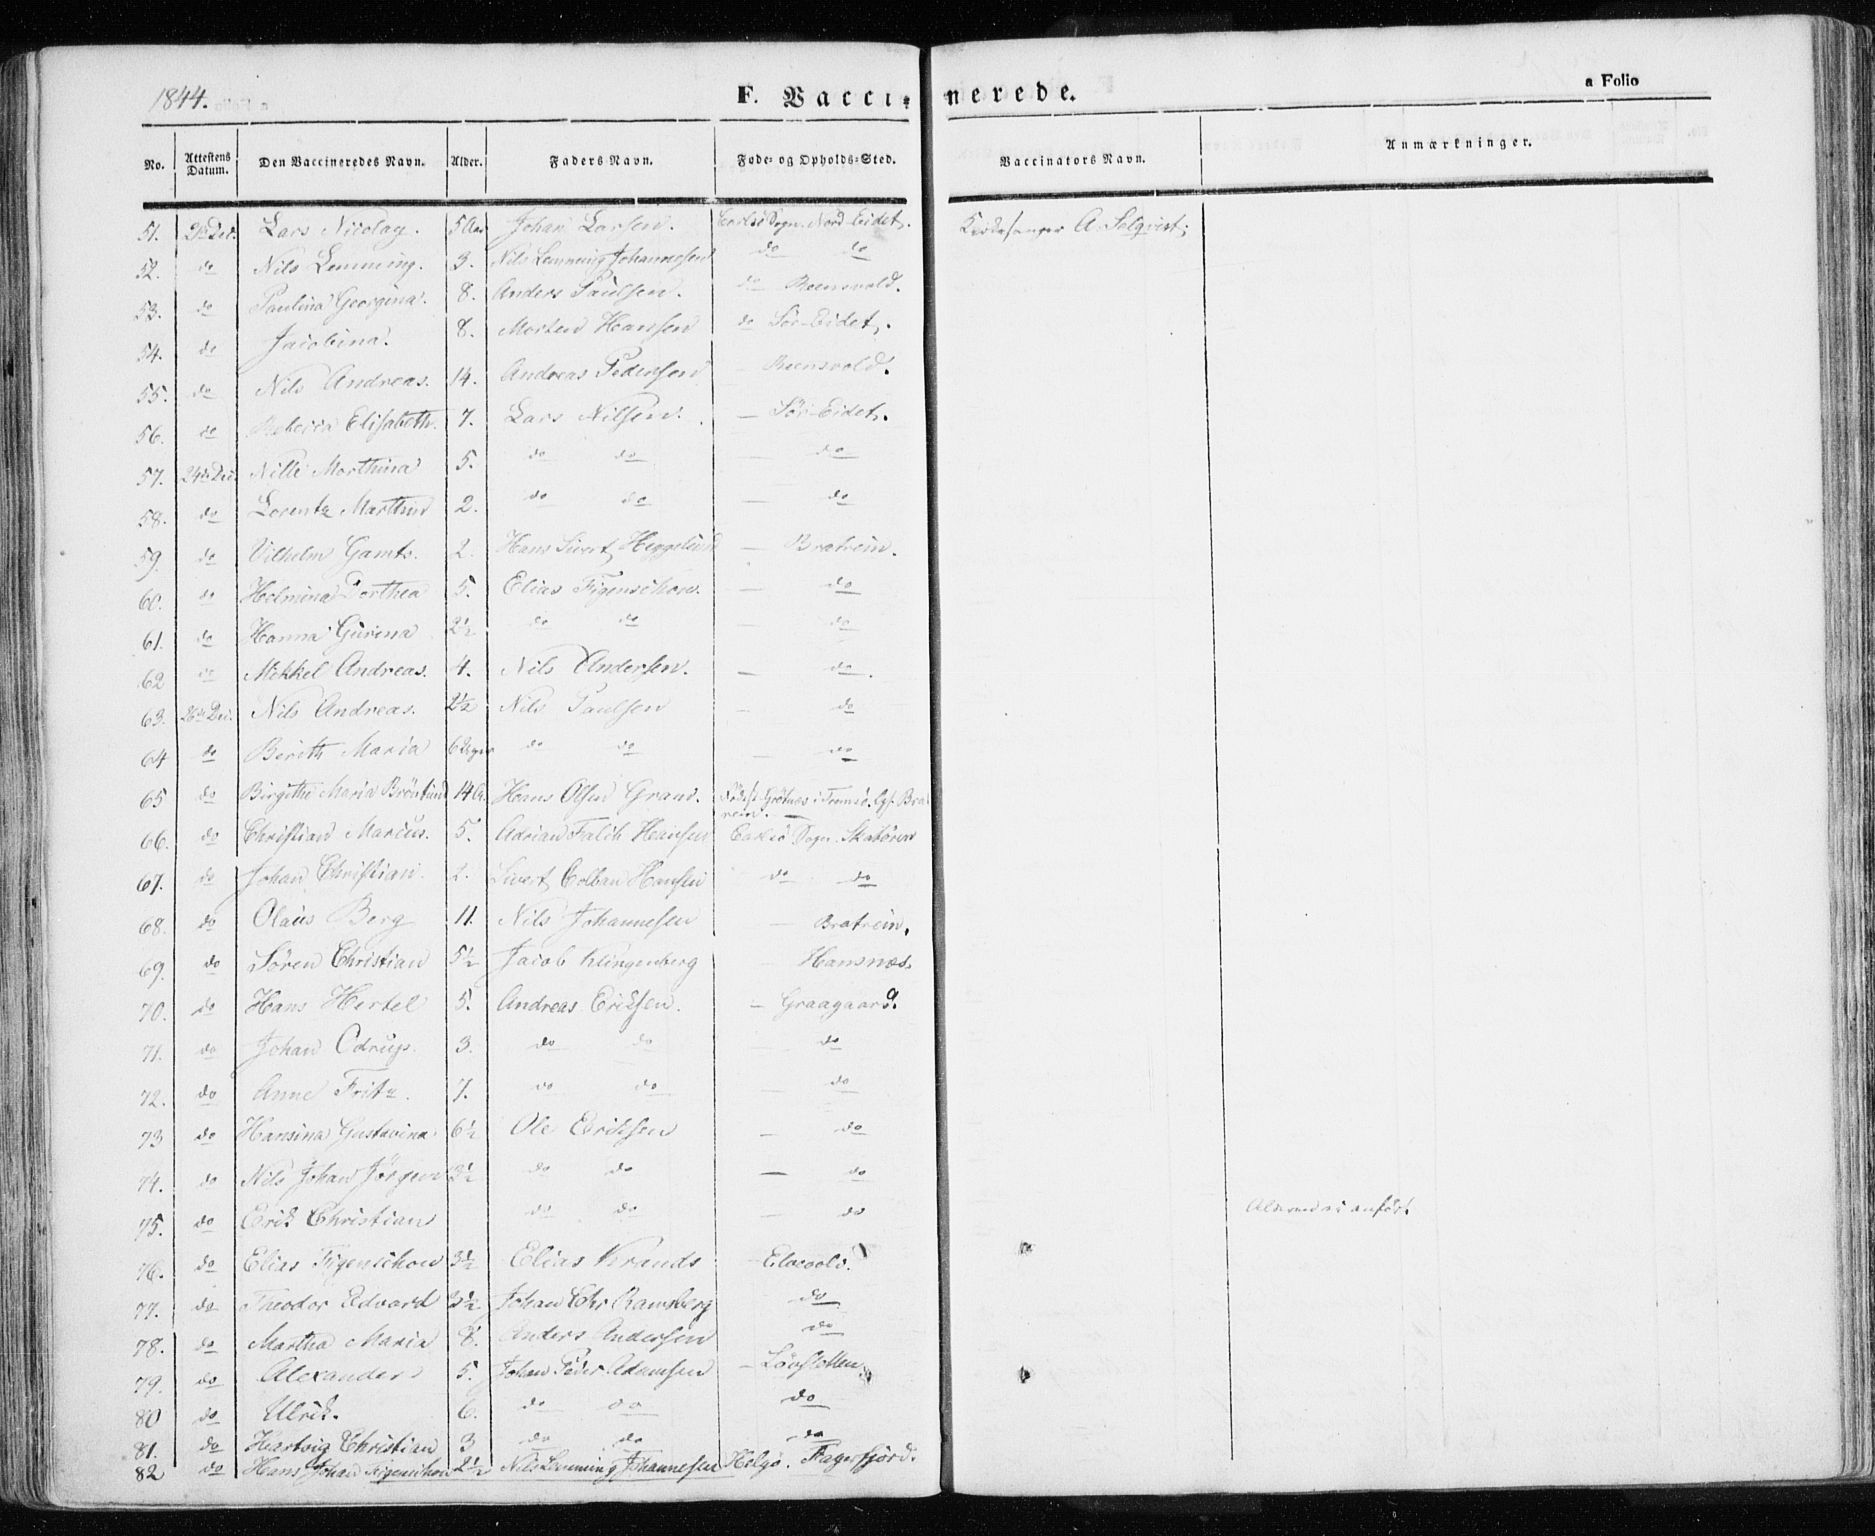 1844.
F. Vaccinerede.
a Folio
No. Attestens Datum. Den Vaccineredes Navn. Alder. Faders Navn. Føde- og Opholds-Sted. Vaccinators Navn. Anmærkninger.
51. Dec. Lars Nicolay. 5 Johan Larsen. Sogn. Nord-Eidet. Kirkesanger A. Selqvist.
52. do Nils Lemming. 3. Nils Lemming Johannesen do do
53. do Paulina Georgina. 8. Anders Paulsen. do Reensvold.
54. do Jacobina. 8. Morten Hansen do Sör-Eidet.
55. do Nils Andreas. 14. Andreas Pedersen — Reensvold.
56. do Rebecca Elisabeth. 7. Lars Nilsen. — Sör-Eidet.
57. 24de Dec. Nille Morthina 5. do do — do
58. do Lorentz Marthin 2. do do — do
59. do Vilhelm Gamts. 2. Hans Sivert Heggelund — Bratrein.
60. do Helmina Dorthea 5. Elias Figenschou. — do
61. do Hanna Gurina 2½ do do — do
62 do Mikkel Andreas. 4. Nils Andersen. — do.
63. 26de Dec. Nils Andreas. 2½ Nils Paulsen — do
64 do Bereth Maria 6 Uger do do — do
65 do Birgithe Maria 14 Hans Olsen Grav. Grötnæs i Tromsö. Bra-
rein.
66. do Christian Marcus. 5. Adrian Falch Hansen Sogn. Skatören
67. do Johan Christian. 2. Sivert Colban Hansen do do
68. do Olaus Berg 11. Nils Johannesen — Bratrein.
69. do Sören Christian 5½ Jacob Klingenberg Hansnæs.
70. do Hans Hertel 5. Andreas Eriksen. — Graagaard.
71. do Johan Odrup. 3. do do — do
72. do Anne Fritz. 7. do do — do
73 do Hansina Gustavina 6½ Ole Eriksen — do
74. do Nils Johan Jörgen 3½ do do — do
75. do Erik Christian do do — do Alderen ei anfört
76. do Elias Figenschou 3½ Elias Krands
77. do Theodor Edvard 3½ Johan Chr Ramsberg do
78. do Martha Maria 8. Anders Andersen do
79. do Alexander 5. Johan Peder Adamsen — Lövsletten
80 do Ulrik. 6. do do do
81. do Hartvig Christian 3 do do do
82 do Hans Johan Figenschou 2½ Nils Lemming Johannesen Helgö. Fagerfjord.